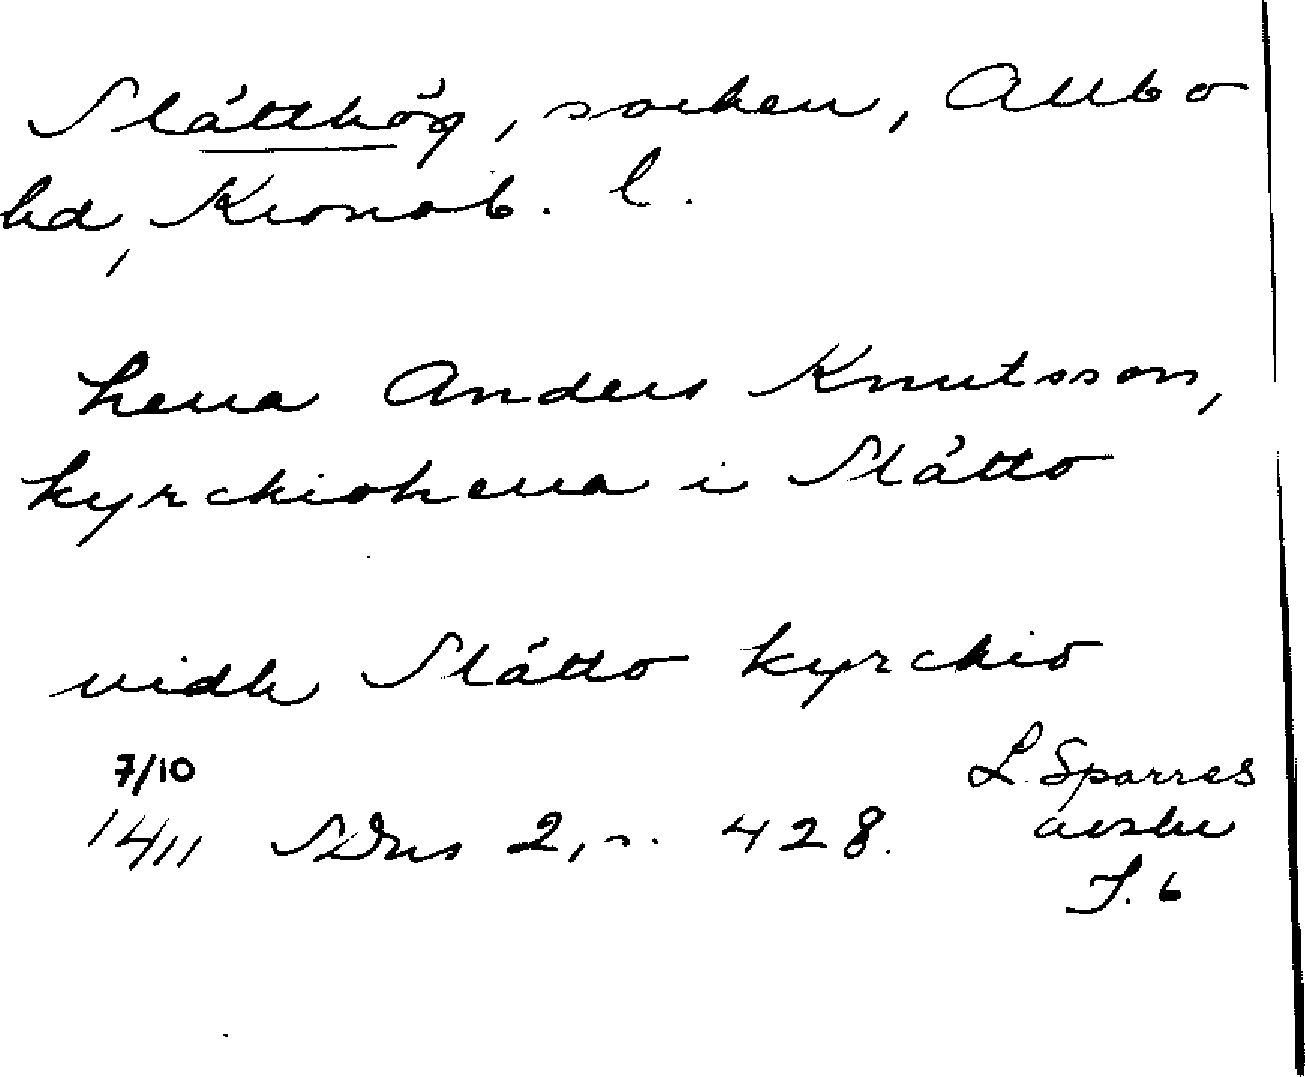 Slätthög, socken, Allbo
hd, Kronob. l.
herra Anders Knutsson,
kyrckioherra i Slätto
vidh Slätto kyrckio
7/10
1411 SDns 2, s. 428.
L. Sparres
avskr
F. 6